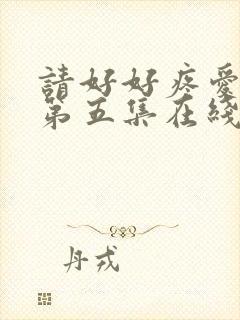 請好好疼愛
第五集在綫
丹戎